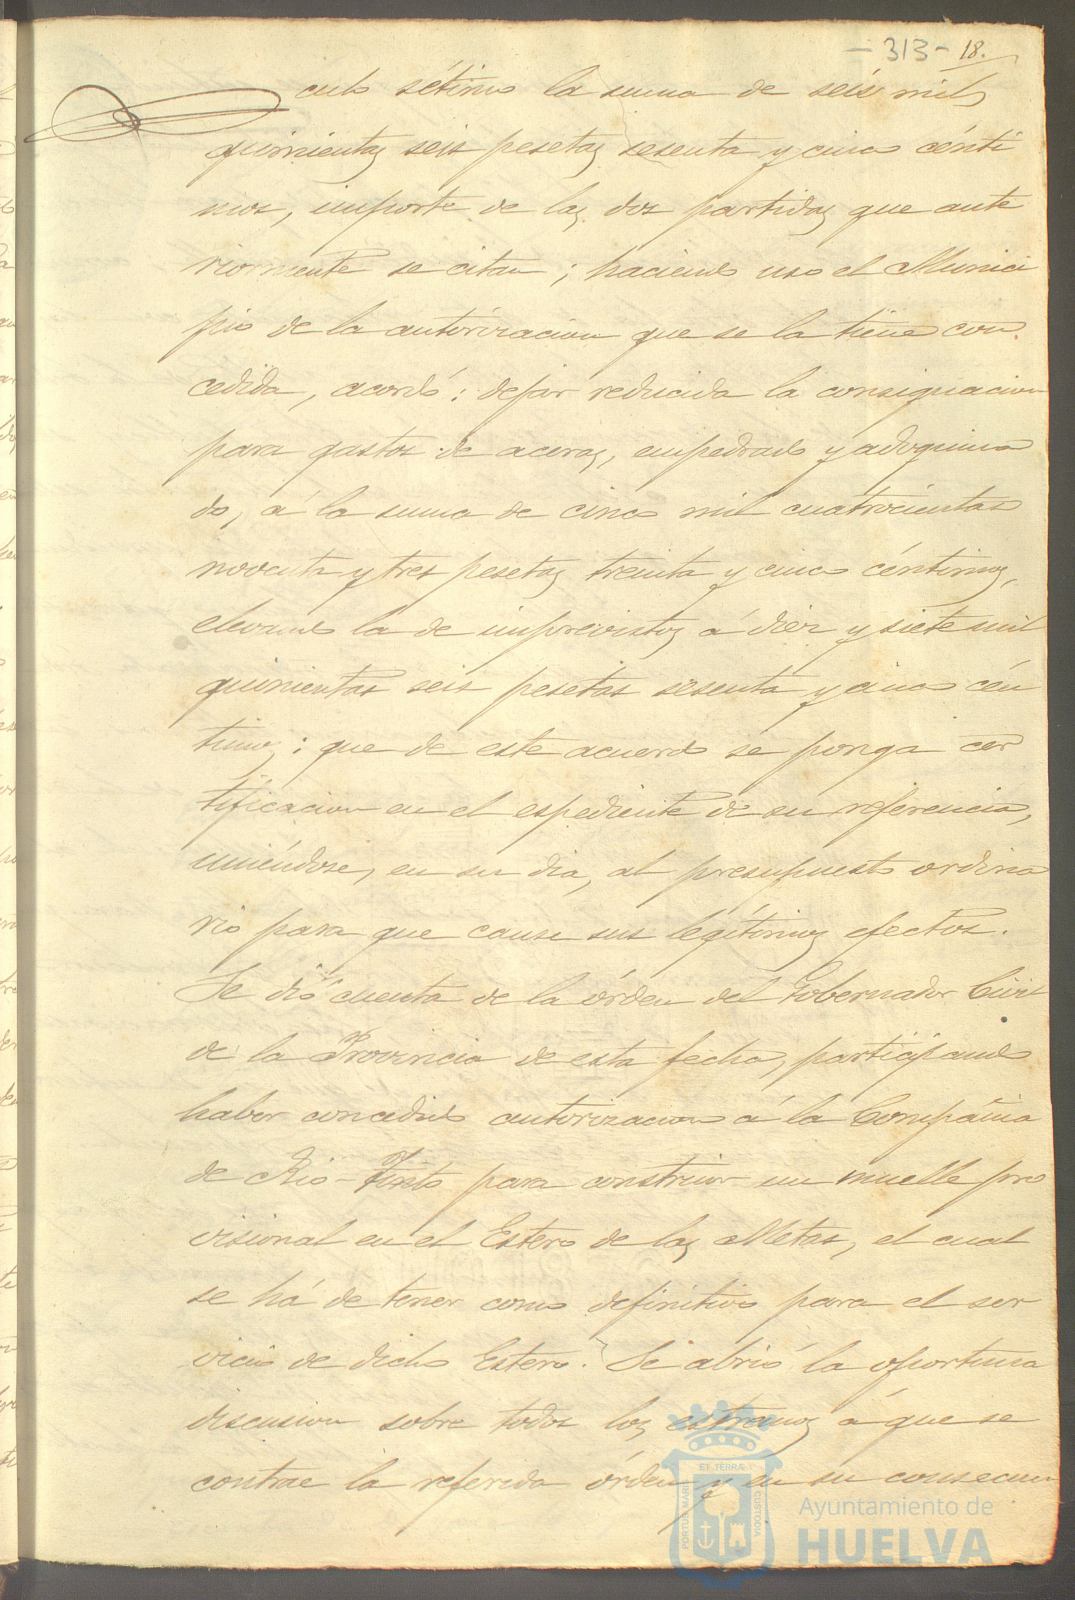 - 313 - 18.
culo sétimo la suma de seis mil
quinientas seis pesetas sesenta y cinco cénti
mos, importe de las dos partidas que ante
riormente se citan; haciendo uso el Munici
pio de la autorizacion que se la tiene con
cedida, acordó: dejar reducida la consignacion
para gastos de aceras, empedrado y adoquina
do, á la suma de cinco mil cuatrocientas
noventa y tres pesetas treinta y cinco céntimos,
elevando la de imprevistos á diez y siete mil
quinientas seis pesetas sesenta y cinco cén
timos; que de este acuerdo se ponga cer
tificacion en el espediente de su referencia,
uniéndose, en su dia, al presupuesto ordina
rio para que cause sus legítimos efectos.
Se dió cuenta de la órden del Gobernador Civil
de la Provincia de esta fecha, participando
haber concedido autorizacion á la Compañia
de Rio-Tinto para construir un muelle pro
visional en el Estero de las Metas, el cual
se há de tener como definitivo para el ser
vicio de dicho Estero. Se abrió la oportuna
discusion sobre todos los estremos á que se
contrae la referida órden y en su consecuen
PORTUS MARIS ET TERRÆ CUSTODIA
Ayuntamiento de
HUELVA